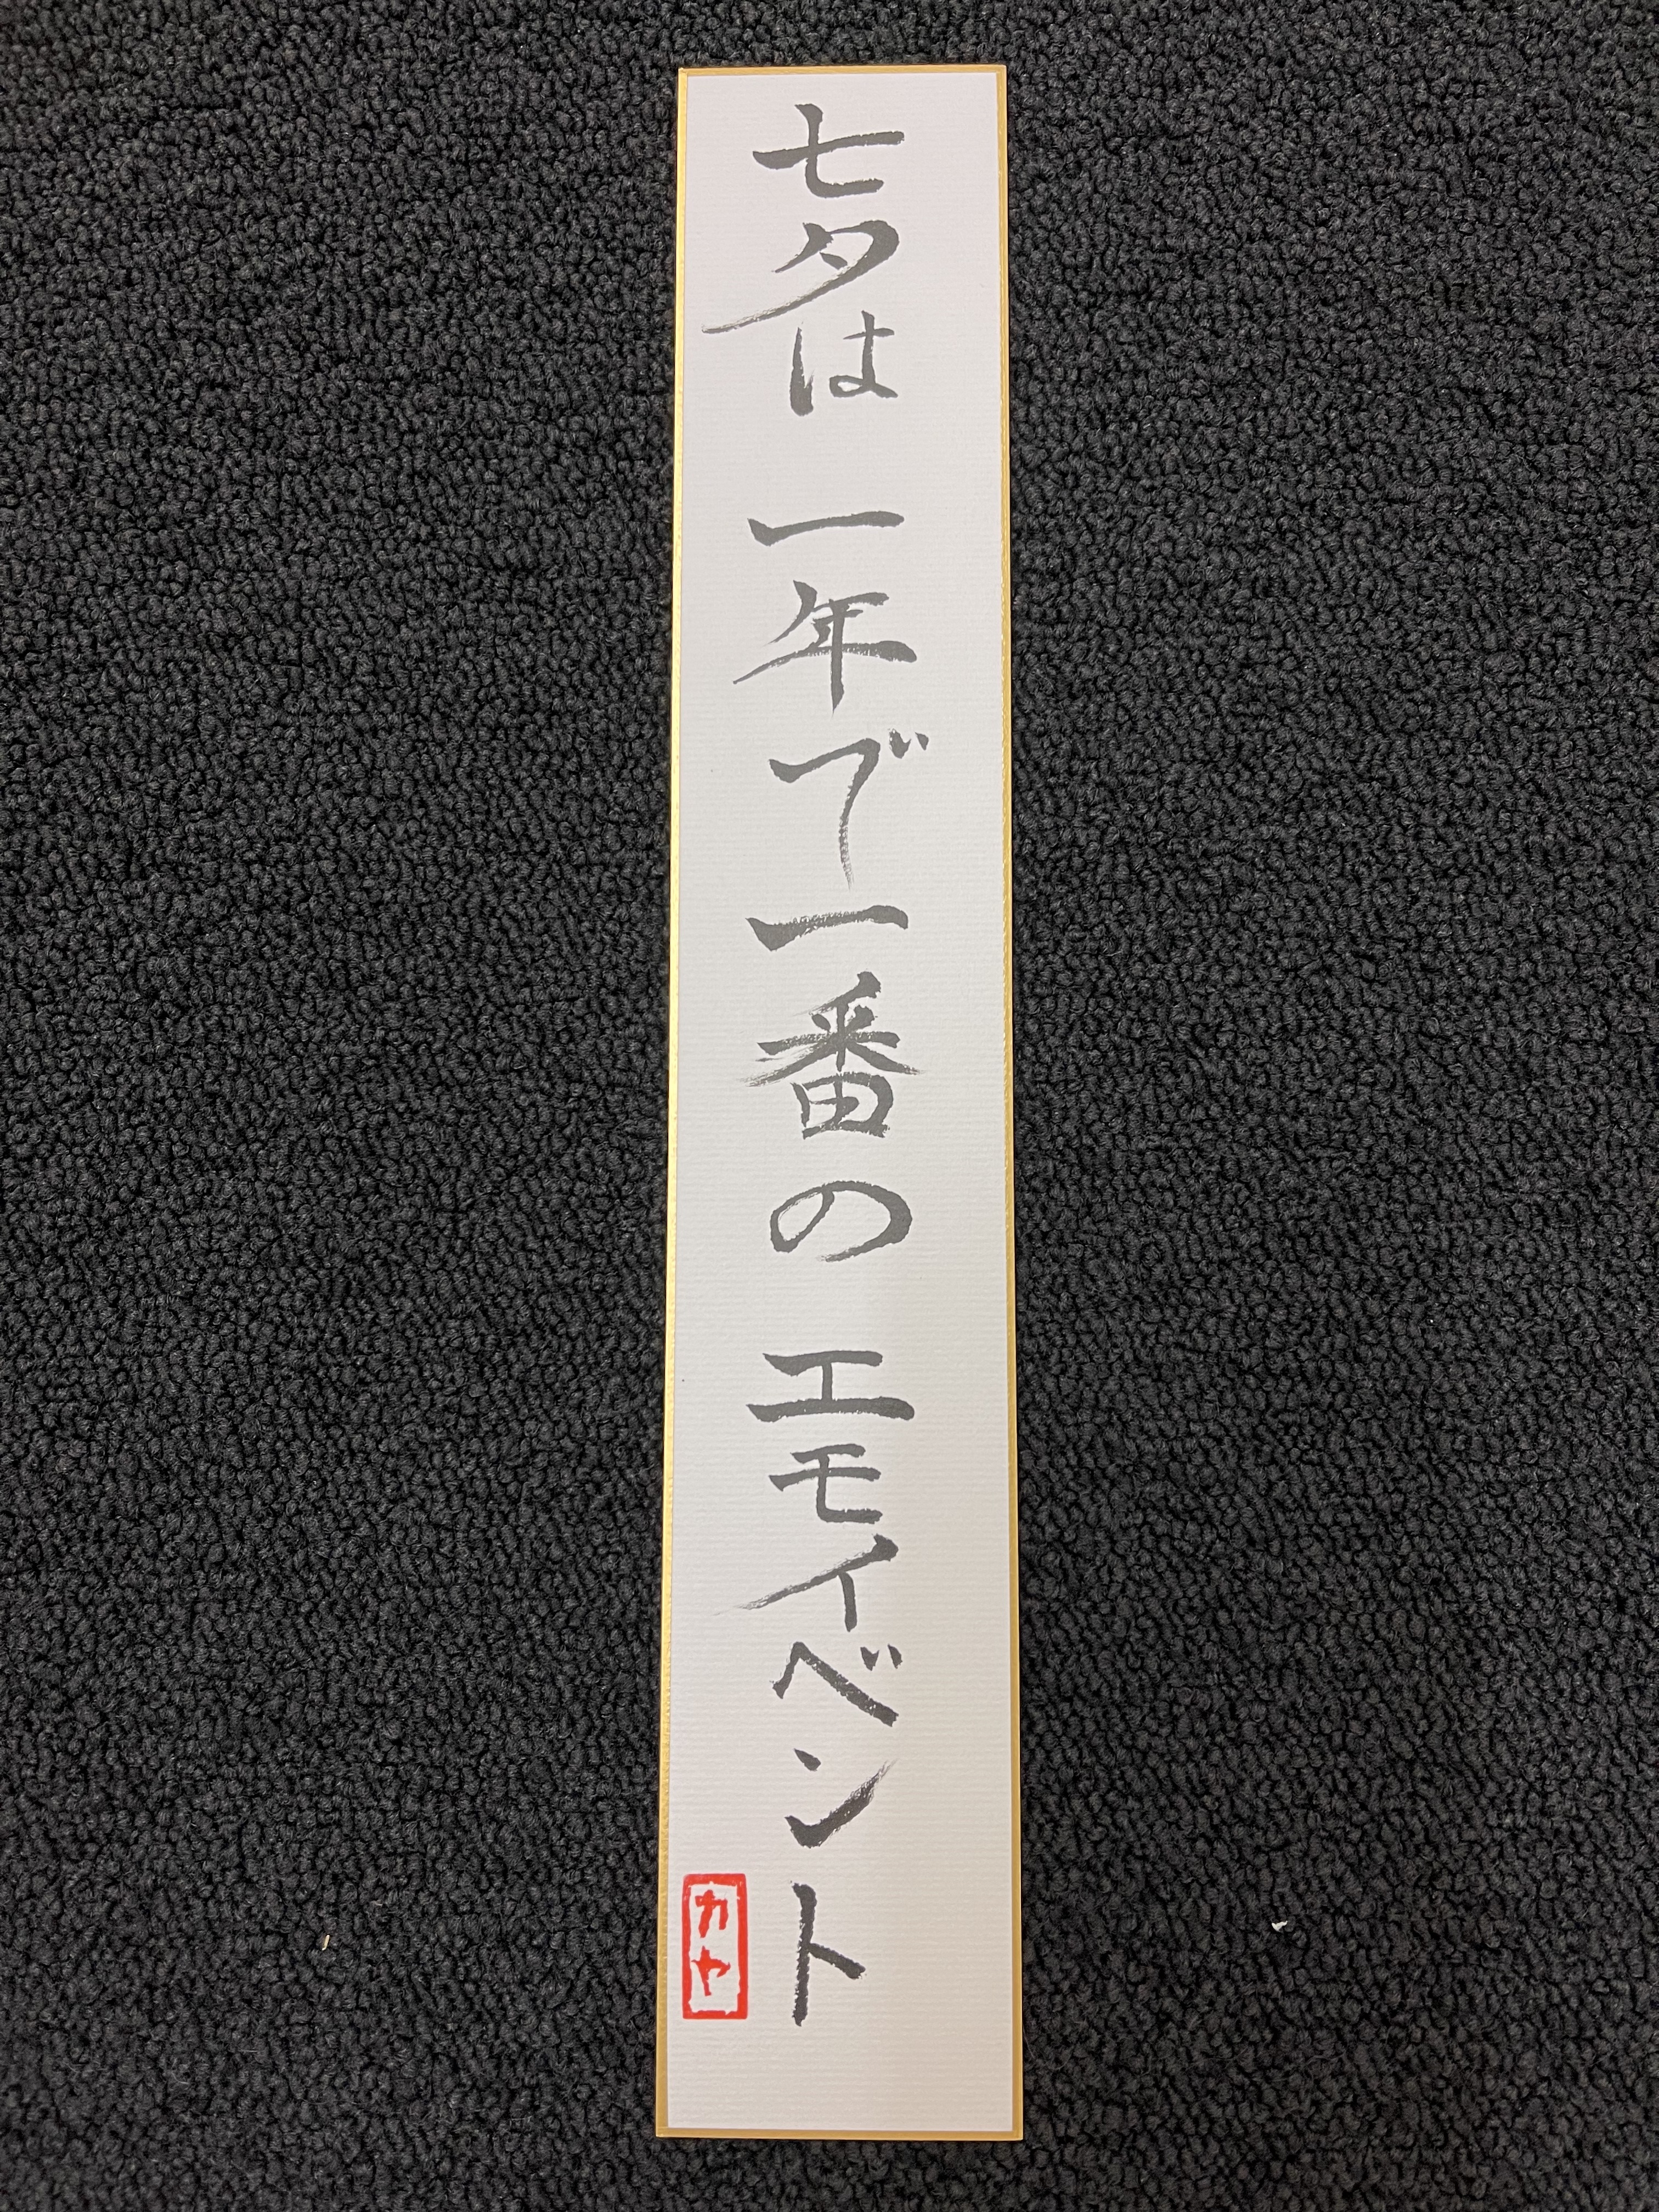 七夕は 一年で一番の エモイベント
カヤ